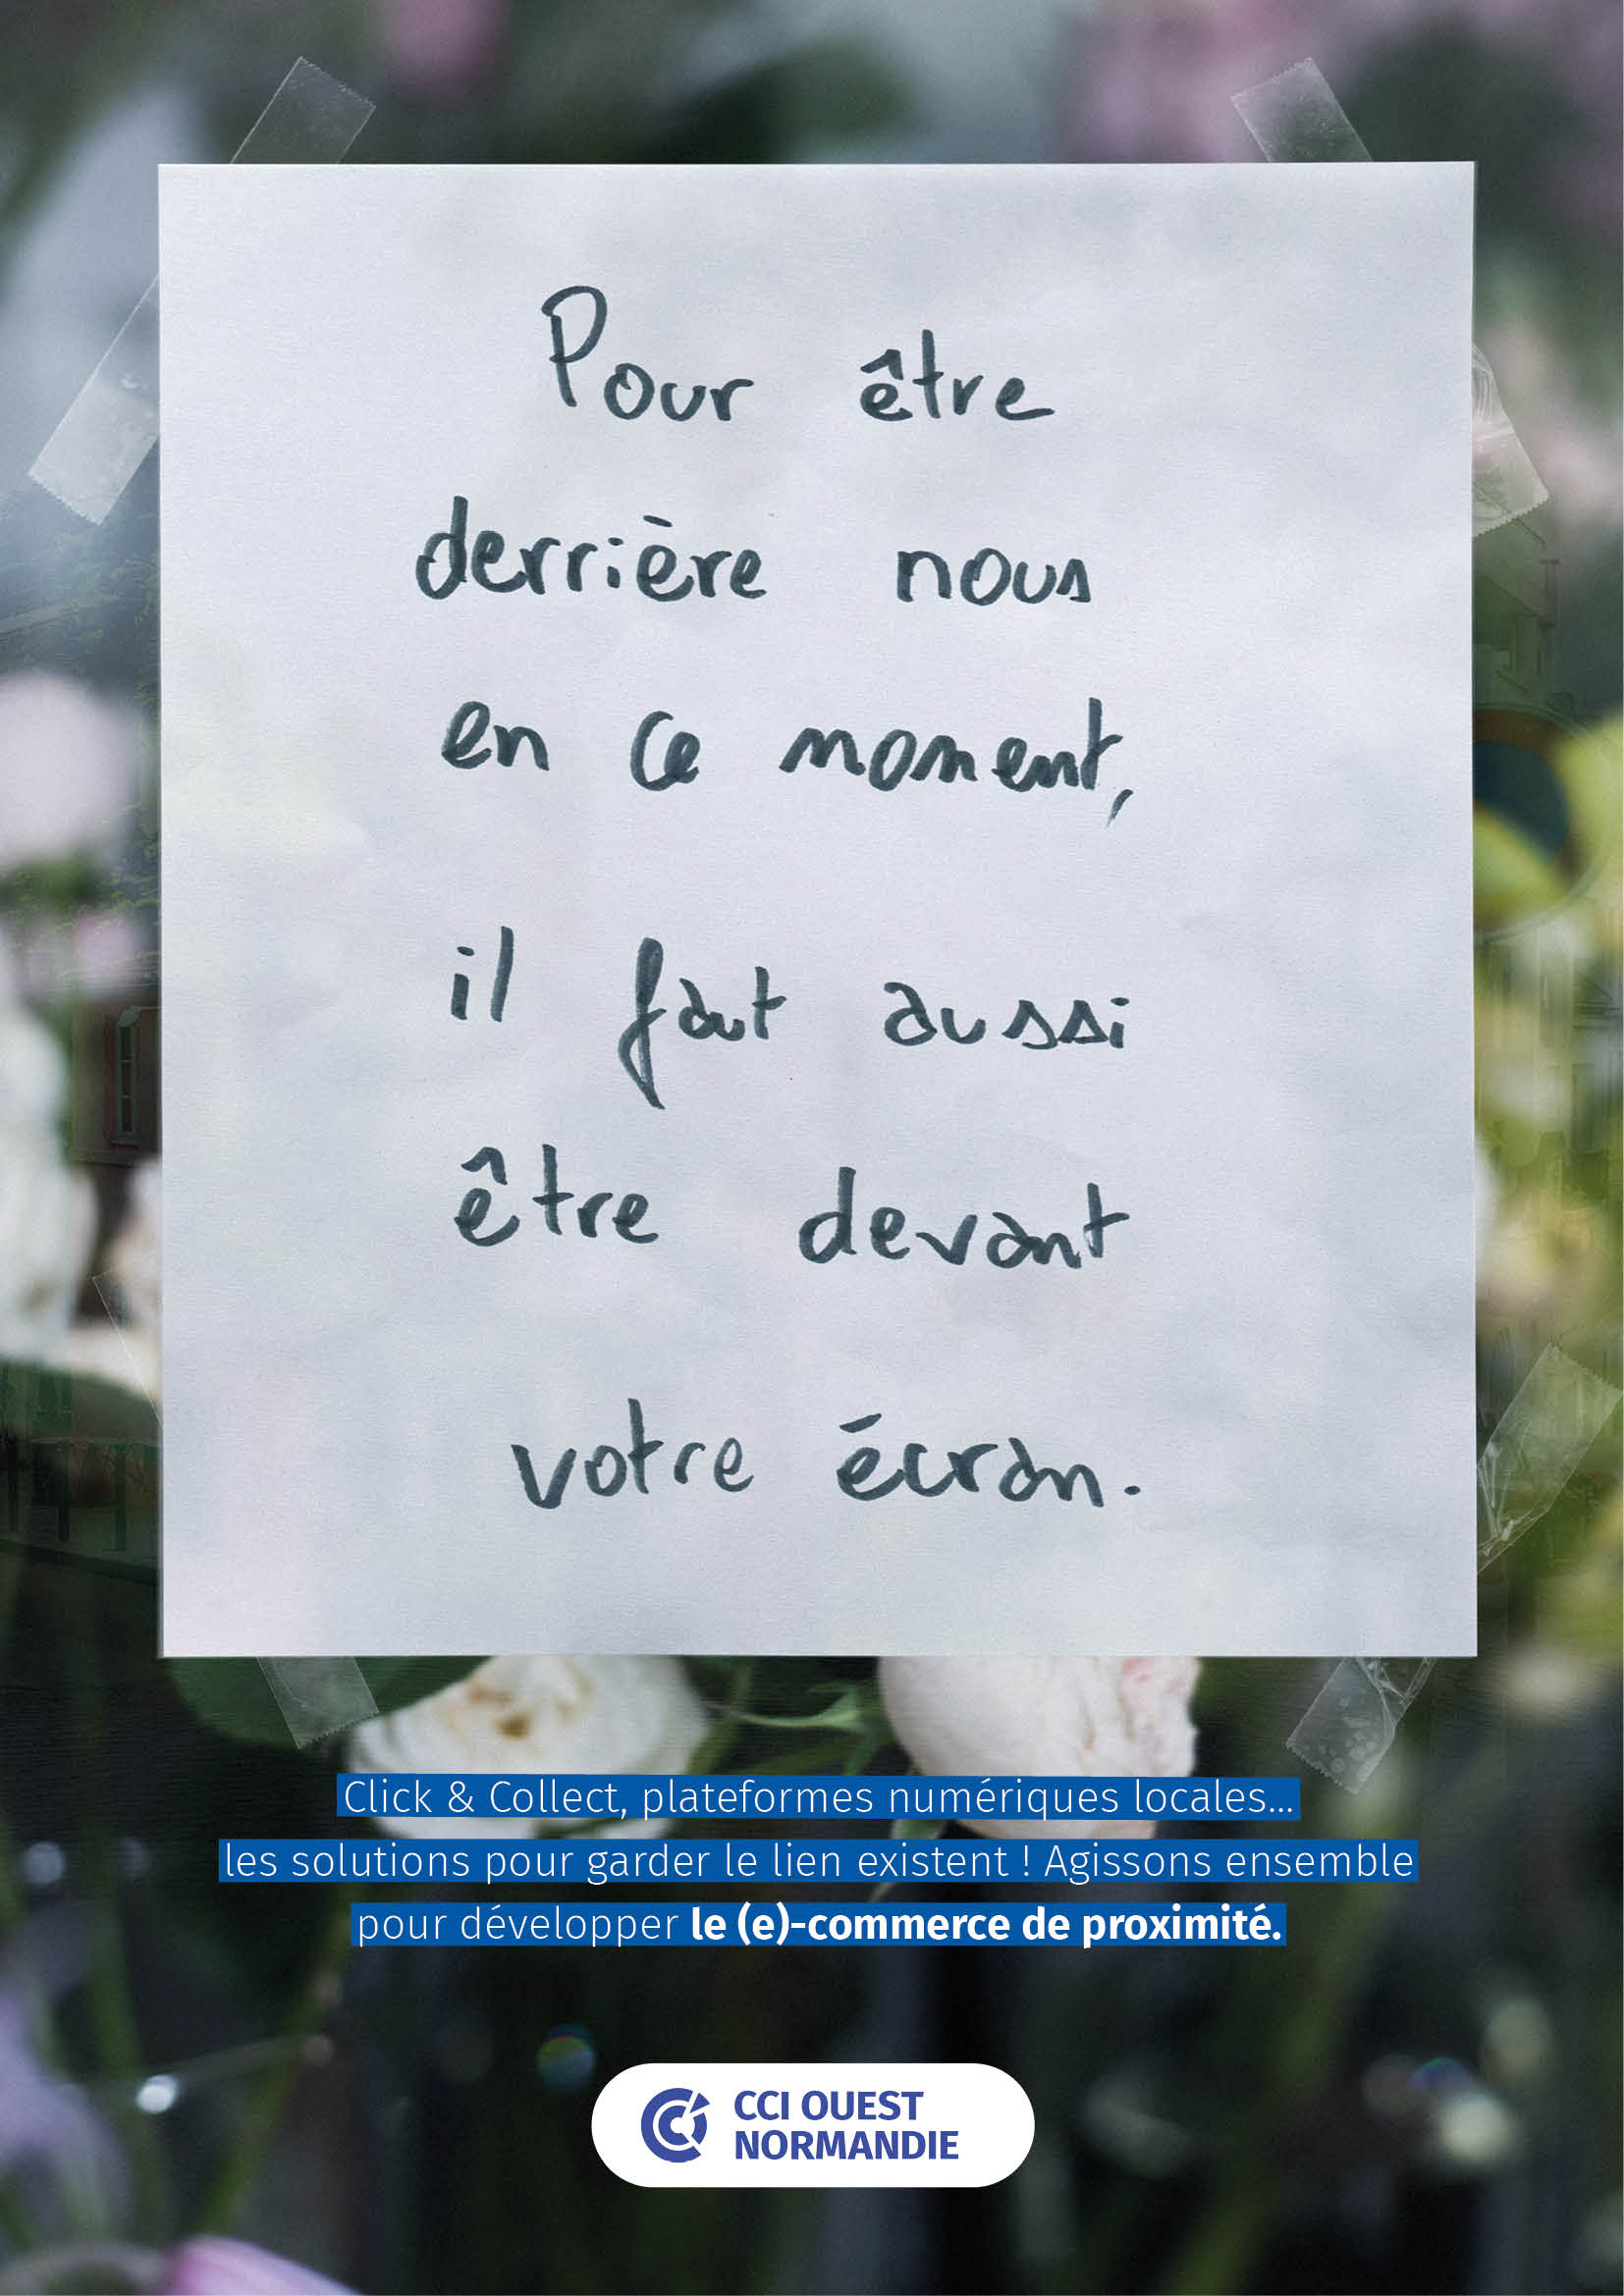 Pour être
derrière nous
en ce moment,
il faut aussi
être devant
votre écran.
Click & Collect, plateformes numériques locales...
les solutions pour garder le lien existent ! Agissons ensemble
pour développer le (e)-commerce de proximité.
CCI OUEST
NORMANDIE